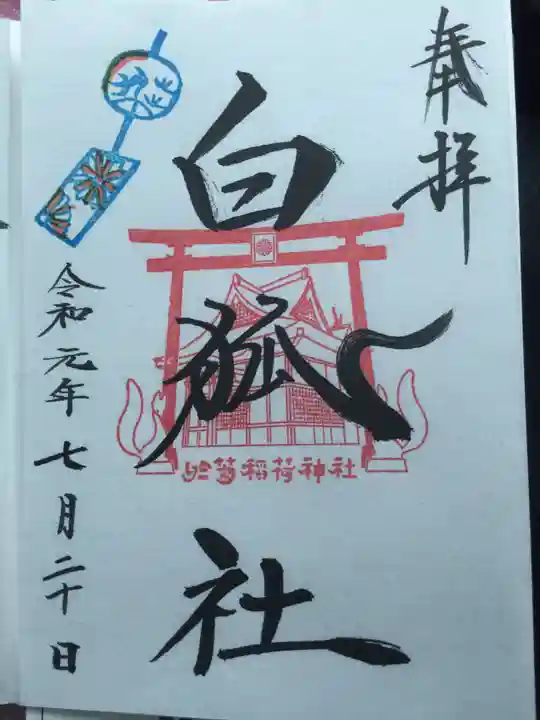 奉拝
白狐社
稲荷神社
令和元年七月二十日